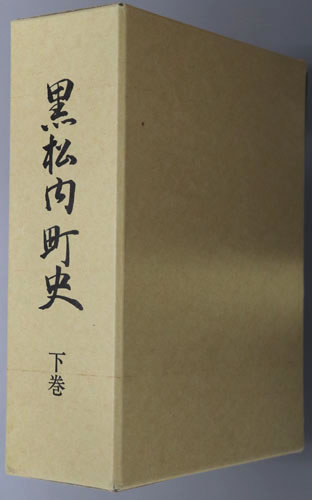 黒松内町史
下巻